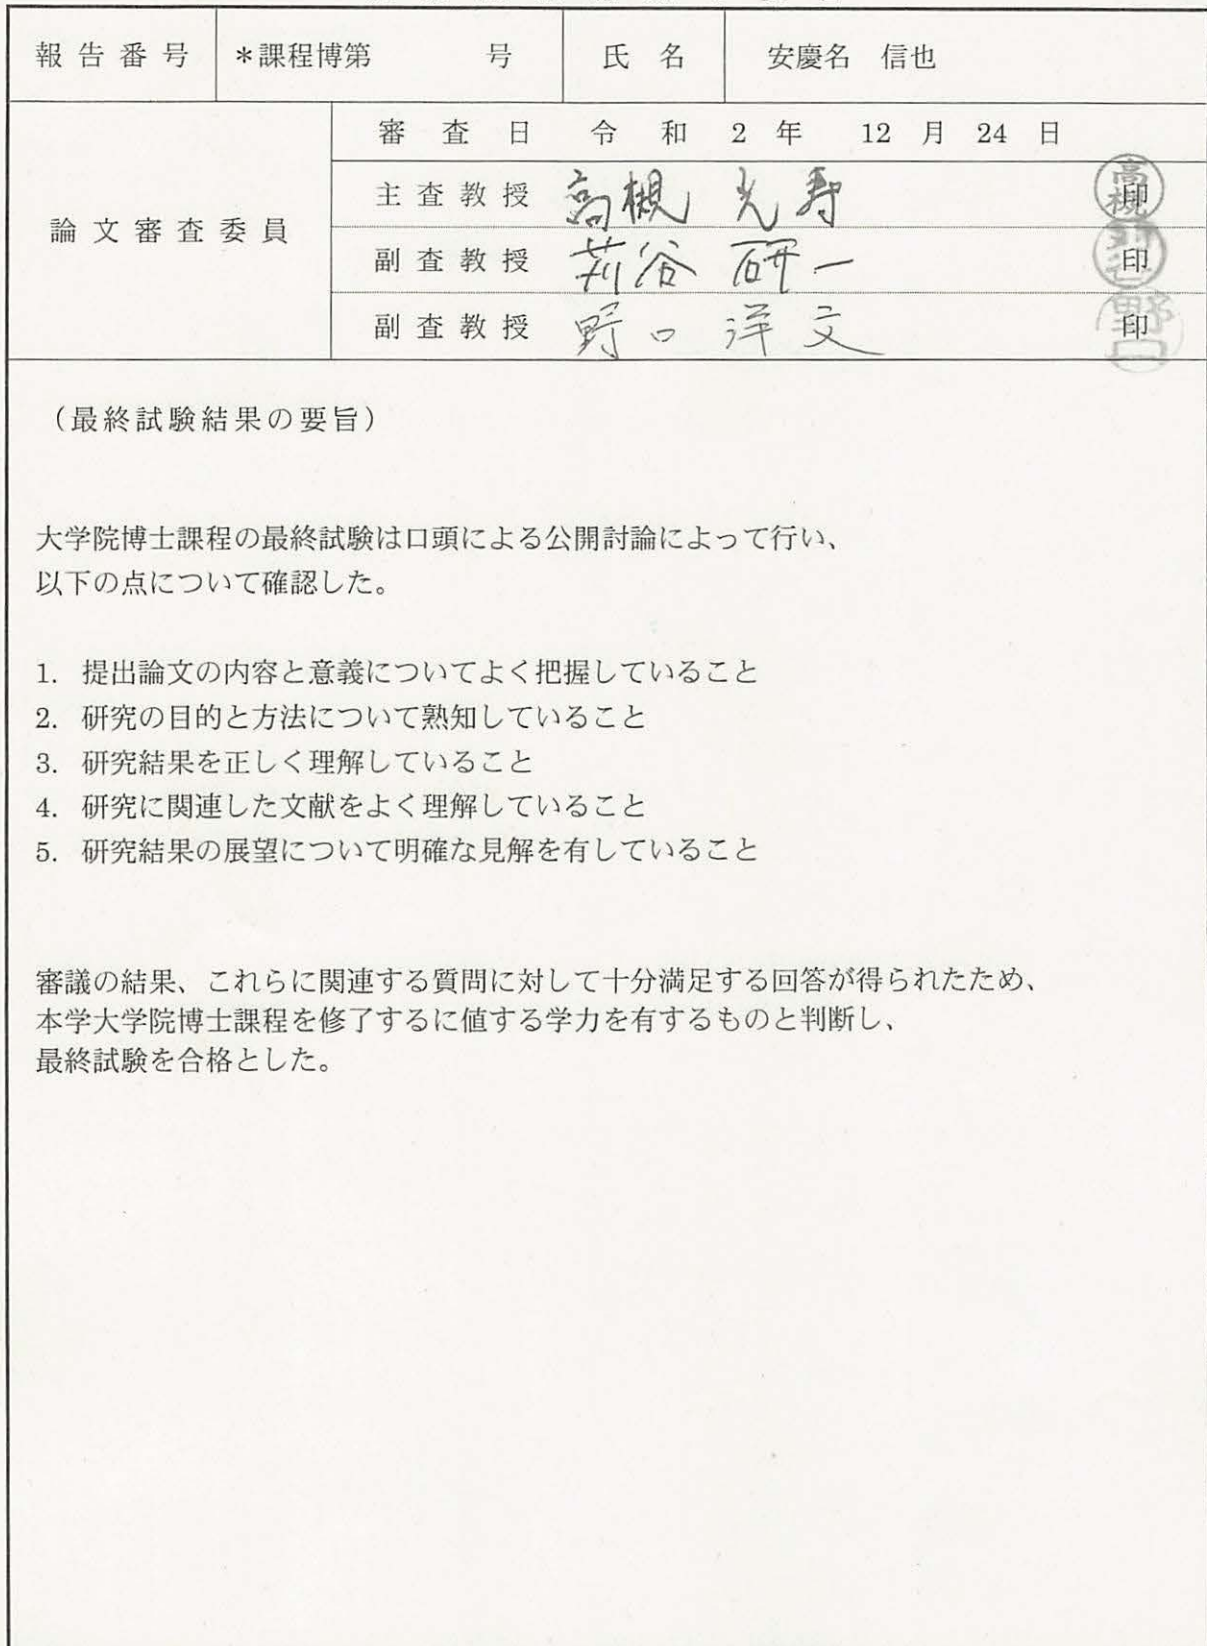 報告番号 *課程博第 号 氏名 安慶名 信也
論文審査委員
審査日 令和 2年 12月 24日
主査教授 高槻 光寿 印
副査教授 苅谷 研一 印
副査教授 野口 洋文 印
(最終試験結果の要旨)
大学院博士課程の最終試験は口頭による公開討論によって行い、
以下の点について確認した。
1. 提出論文の内容と意義についてよく把握していること
2. 研究の目的と方法について熟知していること
3. 研究結果を正しく理解していること
4. 研究に関連した文献をよく理解していること
5. 研究結果の展望について明確な見解を有していること
審議の結果、これらに関連する質問に対して十分満足する回答が得られたため、
本学大学院博士課程を修了するに値する学力を有するものと判断し、
最終試験を合格とした。